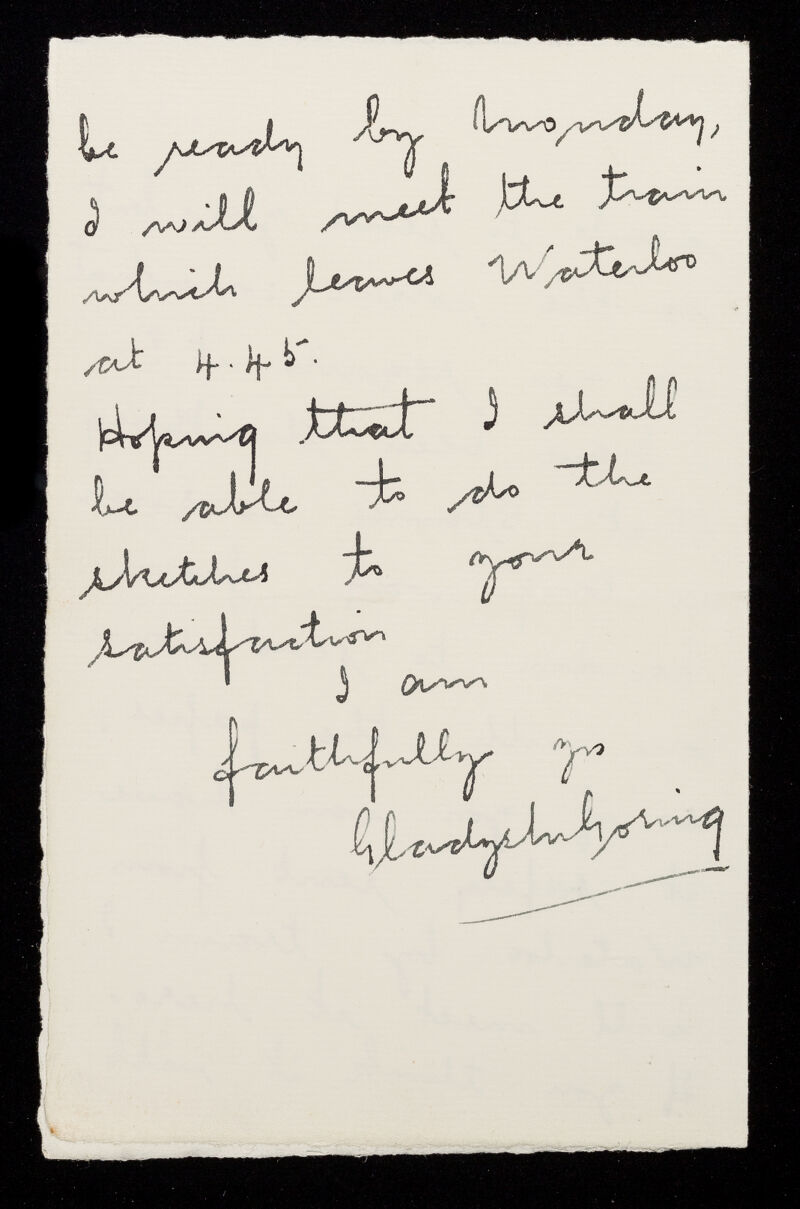 be ready by Monday,
I will meet the train
which leaves Waterloo
at 4.45.
Hoping that I shall
be able to do the
sketches to your
satisfaction
I am
faithfully yrs
Gladys M Goring